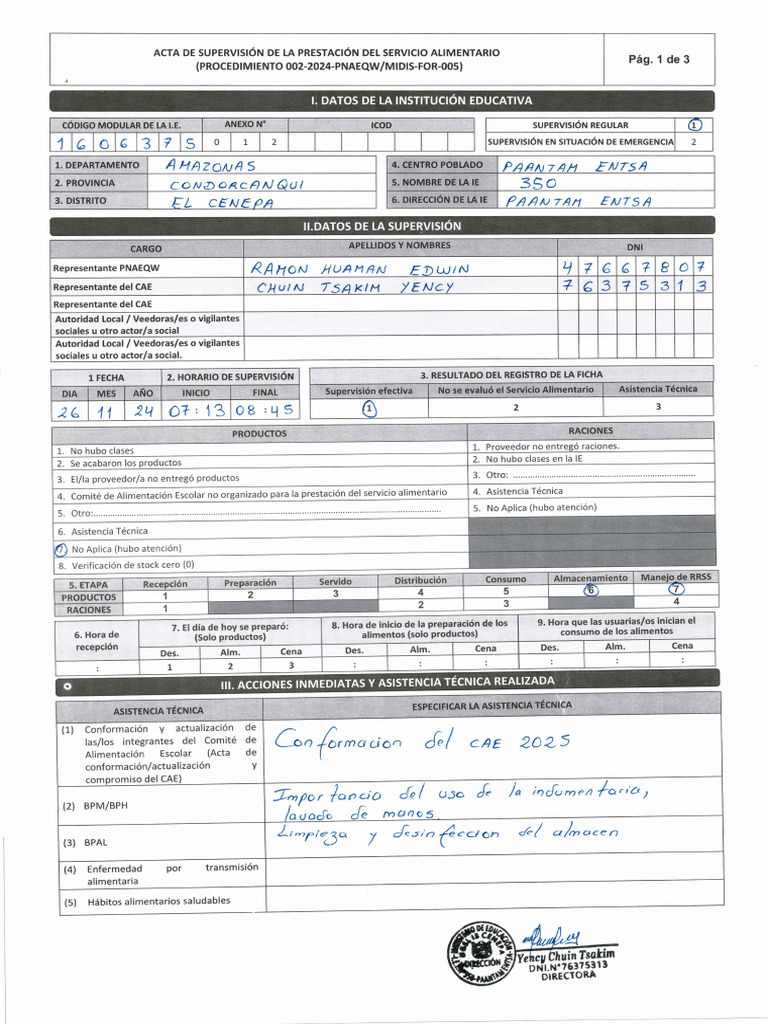 ACTA DE SUPERVISIÓN DE LA PRESTACIÓN DEL SERVICIO ALIMENTARIO
(PROCEDIMIENTO 002-2024-PNAEQW/MIDIS-FOR-005)
Pág. 1 de 3
I. DATOS DE LA INSTITUCIÓN EDUCATIVA
CÓDIGO MODULAR DE LA I.E. ANEXO N° ICOD SUPERVISIÓN REGULAR 1
1 6 0 6 3 7 5 0 1 2 SUPERVISIÓN EN SITUACIÓN DE EMERGENCIA 2
1. DEPARTAMENTO AMAZONAS 4. CENTRO POBLADO PAANTAM ENTSA
2. PROVINCIA CONDORCANQUI 5. NOMBRE DE LA IE 350
3. DISTRITO EL CENEPA 6. DIRECCIÓN DE LA IE PAANTAM ENTSA
II.DATOS DE LA SUPERVISIÓN
CARGO APELLIDOS Y NOMBRES DNI
Representante PNAEQW RAMON HUAMAN EDWIN 4 7 6 6 7 8 0 7
Representante del CAE CHUIN TSAKIM YENCY 7 6 3 7 5 3 1 3
Representante del CAE
Autoridad Local / Veedoras/es o vigilantes
sociales u otro actor/a social
Autoridad Local / Veedoras/es o vigilantes
sociales u otro actor/a social.
1 FECHA 2. HORARIO DE SUPERVISIÓN 3. RESULTADO DEL REGISTRO DE LA FICHA
DIA MES AÑO INICIO FINAL Supervisión efectiva No se evaluó el Servicio Alimentario Asistencia Técnica
26 11 24 07:13 08:45 1 2 3
PRODUCTOS RACIONES
1. No hubo clases 1. Proveedor no entregó raciones.
2. Se acabaron los productos 2. No hubo clases en la IE
3. El/la proveedor/a no entregó productos 3. Otro: ........................................
4. Comité de Alimentación Escolar no organizado para la prestación del servicio alimentario 4. Asistencia Técnica
5. Otro:........................................ 5. No Aplica (hubo atención)
6. Asistencia Técnica
7. No Aplica (hubo atención)
8. Verificación de stock cero (0)
5. ETAPA Recepción Preparación Servido Distribución Consumo Almacenamiento Manejo de RRSS
PRODUCTOS 1 2 3 4 5 6 7
RACIONES 1 2 3 4
6. Hora de recepción 7. El día de hoy se preparó: (Solo productos) 8. Hora de inicio de la preparación de los alimentos (solo productos) 9. Hora que las usuarias/os inician el consumo de los alimentos
Des. Alm. Cena Des. Alm. Cena Des. Alm. Cena
: 1 2 3 : : : : : :
III. ACCIONES INMEDIATAS Y ASISTENCIA TÉCNICA REALIZADA
ASISTENCIA TÉCNICA ESPECIFICAR LA ASISTENCIA TÉCNICA
(1) Conformación y actualización de
las/los integrantes del Comité de
Alimentación Escolar (Acta de
conformación/actualización y
compromiso del CAE)
Conformacion del CAE 2025
(2) BPM/BPH
Importancia del uso de la indumentaria,
lavado de manos.
(3) BPAL
Limpieza y desinfeccion del almacen
(4) Enfermedad por transmisión
alimentaria
(5) Hábitos alimentarios saludables
MINISTERIO DE EDUCACIÓN
DIRECCIÓN
Yency Chuin Tsakim
DNI.N°76375313
DIRECTORA